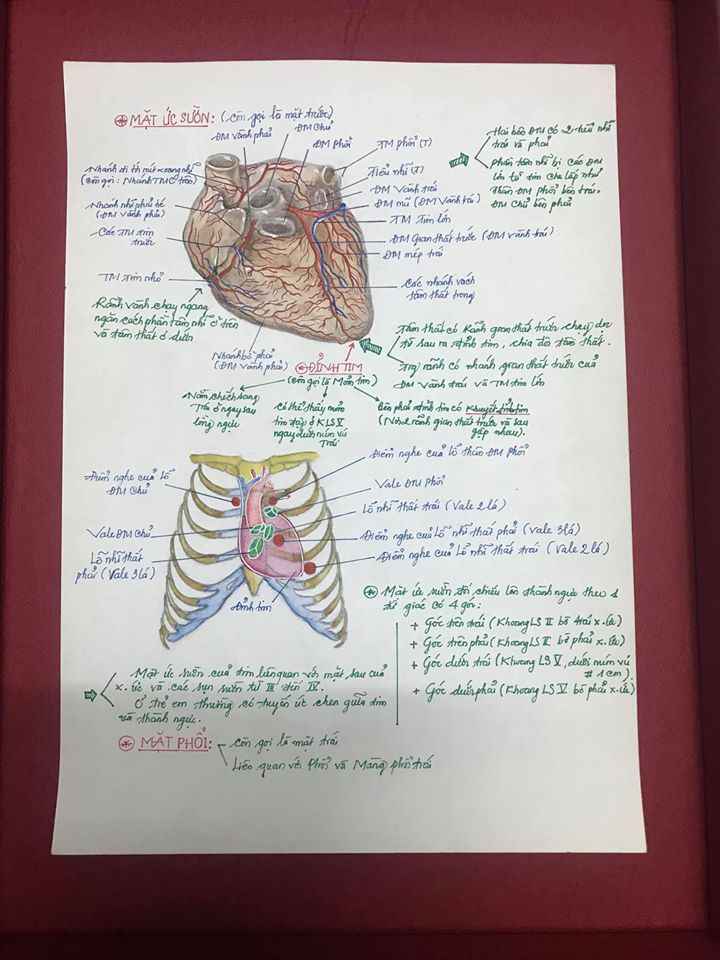 ⊛ MẶT ỨC SƯỜN: (còn gọi là mặt trước)
ĐM vành phải
ĐM Chủ
ĐM phổi
TM phổi (T)
Tiểu nhĩ (T)
ĐM Vành trái
ĐM mũ (ĐM Vành trái)
TM Tim lớn
ĐM Gian thất trước (ĐM vành trái)
ĐM mép trái
Các nhánh vách
tâm thất trong
Nhánh đi tới nút xoang nhĩ
(còn gọi: Nhánh TMC trên)
Nhánh nhĩ phải bé
(ĐM vành phải)
Các TM tim
trước
TM tim nhỏ
Nhánh bờ phải
(ĐM vành phải)
Hai bên ĐM có 2 tiểu nhĩ
trái và phải
phần tâm nhĩ bị các ĐM
lớn từ tim che lấp như
Thân ĐM phổi bên trái,
ĐM Chủ bên phải
Rãnh vành chạy ngang
ngăn cách phần tâm nhĩ ở trên
và tâm thất ở dưới
Tâm thất có Rãnh gian thất trước chạy dọc
từ sau ra đỉnh tim, chia đôi tâm thất.
Tại rãnh có nhánh gian thất trước của
ĐM Vành trái và TM tim lớn
⊛ ĐỈNH TIM
(còn gọi là Mỏm tim)
Nằm chếch sang
Trái ở ngay sau
lồng ngực
có thể thấy mỏm
tim đập ở KLS V
ngay dưới núm vú
Trái
Bên phải đỉnh tim có Khuyết đỉnh tim
(Nơi 2 rãnh gian thất trước và sau
gặp nhau).
Điểm nghe của lỗ
ĐM Chủ
Vale ĐM Chủ
Lỗ nhĩ thất
phải (Vale 3 lá)
Đỉnh tim
Điểm nghe của lỗ thân ĐM phổi
Vale ĐM phổi
Lỗ nhĩ thất trái (Vale 2 lá)
Điểm nghe của Lỗ nhĩ thất phải (Vale 3 lá)
Điểm nghe của Lỗ nhĩ thất trái (Vale 2 lá)
⊛ Mặt ức sườn đối chiếu lên thành ngực theo 1
tứ giác có 4 góc:
+ Góc trên trái (Khoang LS II bờ trái x.ức)
+ Góc trên phải (Khoang LS II bờ phải x.ức)
+ Góc dưới trái (Khoang LS V, dưới núm vú
# 1 cm)
+ Góc dưới phải (Khoang LS V bờ phải x.ức)
Mặt ức sườn của tim liên quan với mặt sau của
x.ức và các sụn sườn từ III đến IV.
Ở trẻ em thường có tuyến ức chen giữa tim
và thành ngực.
⊛ MẶT PHỔI:
còn gọi là mặt trái
Liên quan với Phổi và Màng phổi trái